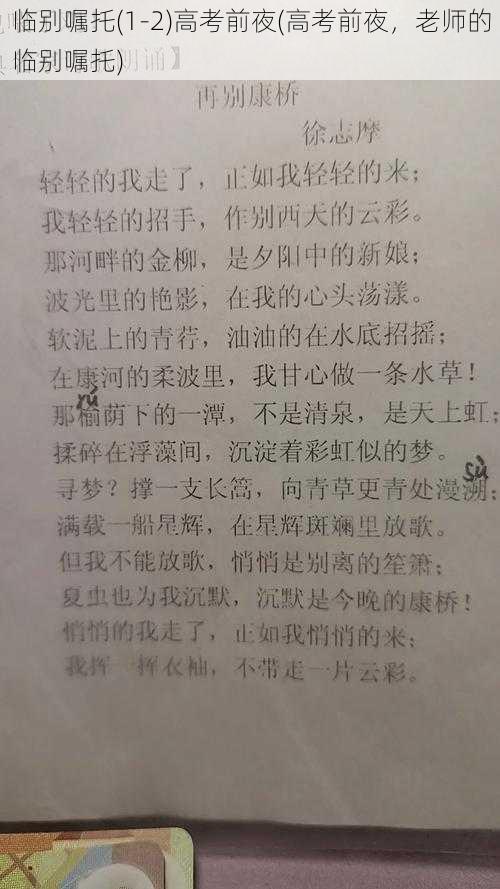 临别嘱托(1-2)高考前夜(高考前夜，老师的
临别嘱托)
诵】
再别康桥
徐志摩
轻轻的我走了，正如我轻轻的来；
我轻轻的招手，作别西天的云彩。
那河畔的金柳，是夕阳中的新娘；
波光里的艳影，在我的心头荡漾。
软泥上的青荇，油油的在水底招摇；
在康河的柔波里，我甘心做一条水草！
yú
那榆荫下的一潭，不是清泉，是天上虹；
揉碎在浮藻间，沉淀着彩虹似的梦。
sù
寻梦？撑一支长篙，向青草更青处漫溯；
满载一船星辉，在星辉斑斓里放歌。
但我不能放歌，悄悄是别离的笙箫；
夏虫也为我沉默，沉默是今晚的康桥！
悄悄的我走了，正如我悄悄的来；
我挥一挥衣袖，不带走一片云彩。